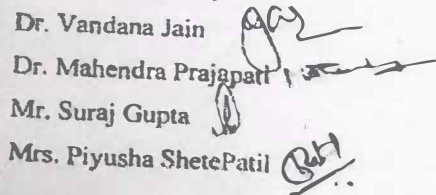 Dr. Vandana Jain
Dr. Mahendra Prajapati
Mr. Suraj Gupta
Mrs. Piyusha ShetePatil